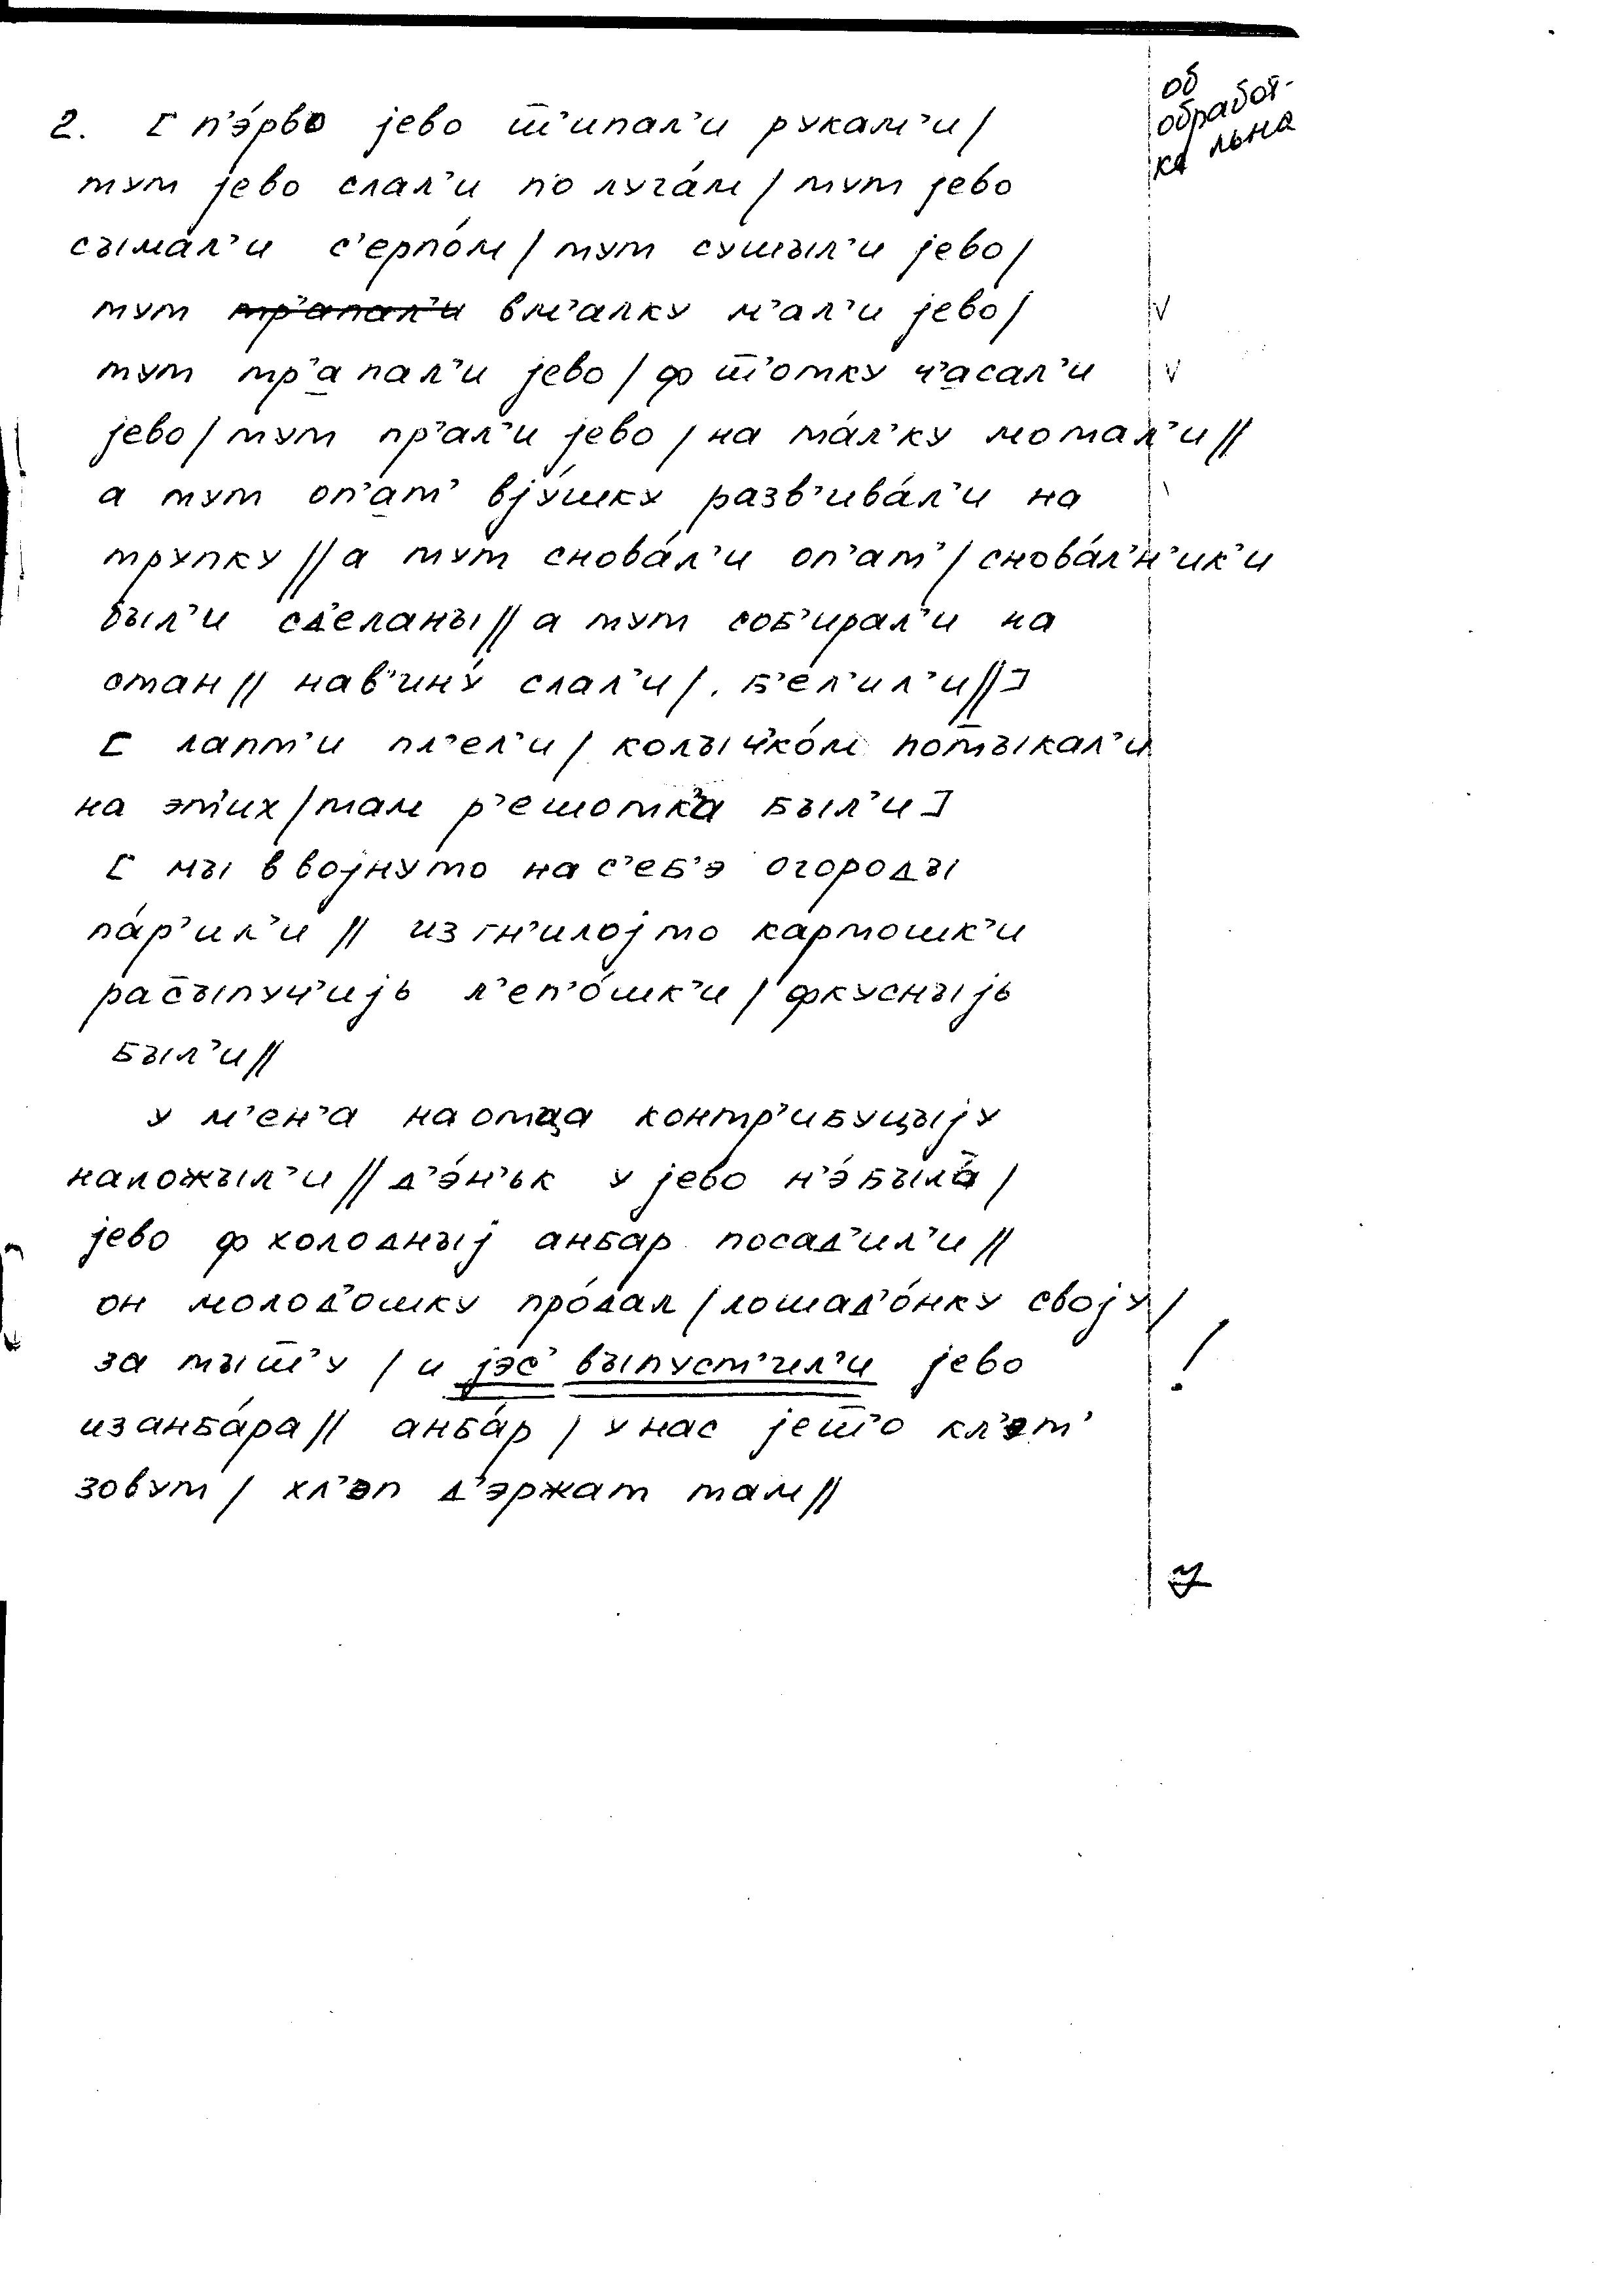 об
обработ-
ке льна
2. [ п'э́рво jево ш̄'ипал'и рукам'и /
тут jево слал'и по луга́м / тут jево
сыма́л'и с'ерпо́м / тут сушыл'и jево /
тут тр'апал'и вм'алку м'ал'и jево / v
тут тр'апал'и jево / ф ш̄'отку ч'асал'и v
jево / тут пр'ал'и jево / на та́л'ку мотал'и //
а тут оп'ат' вjу́шку разв'ива́л'и на
трупку // а тут снова́л'и оп'ат' / снова́л'н'ик'и
был'и сд'еланы // а тут соб'ирал'и на
стан // нав'ину́ слал'и /. б'ел'ил'и // ]
[ лапт'и пл'ел'и / колыч'ко́м пот̄ыкал'и
на эт'их / там р'ешотка был'и ]
[ мы в војнуто на с'еб'э огороды
па́р'ил'и // из гн'илојто картошк'и
рас̄ыпуч'иjь л'еп'о́шк'и / фкусныjь
был'и //
у м'ен'а на отца контр'ибуцыjу
наложыл'и // д'э́н'ьк у jево н'э́была /
jево ф холодныj анбар посад'ил'и //
он молод'ошку про́дал / лошад'о́нку своjу /
за тыш̄'у / и jэс' выпуст'ил'и jево !
из анба́ра // анба́р / у нас jеш̄'о кл'эт'
зовут / хл'эп д'эржат там //